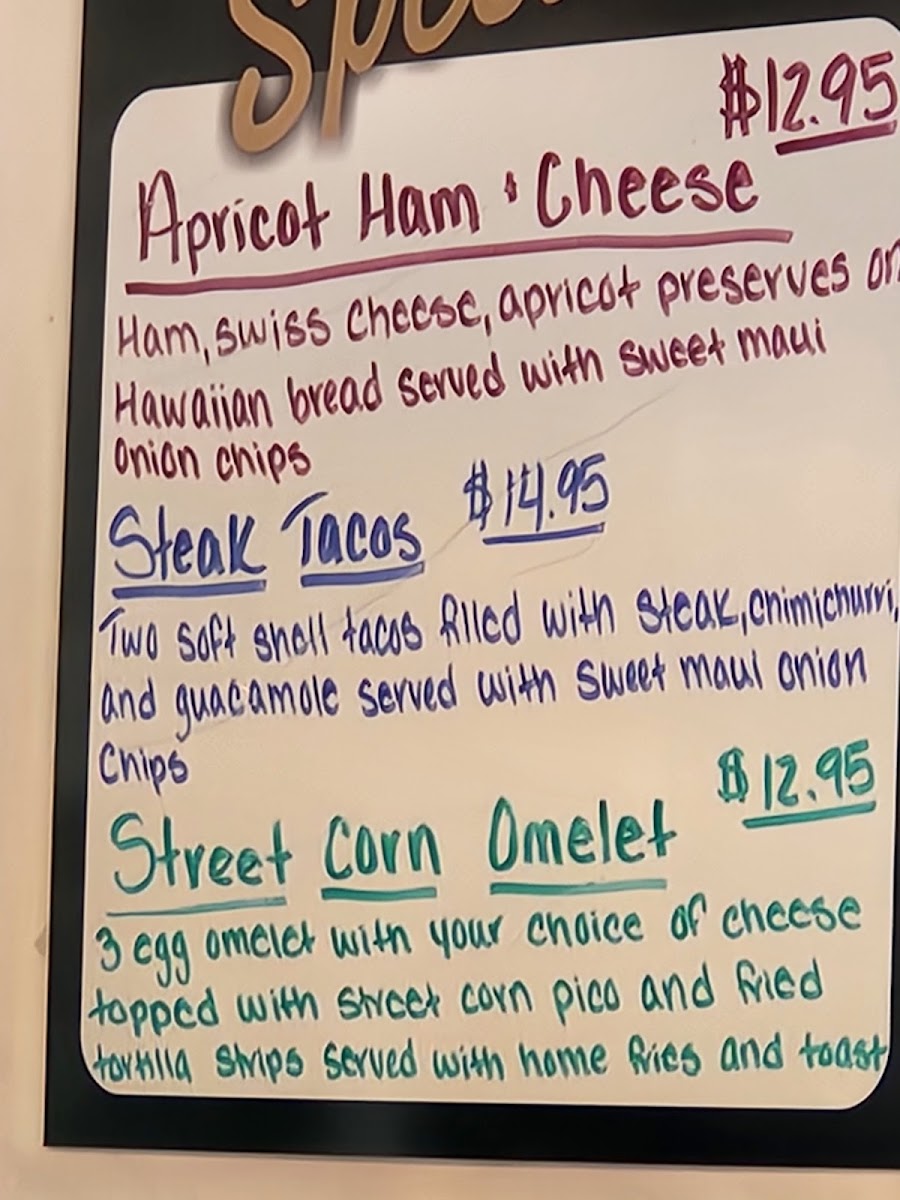 $12.95
Apricot Ham & Cheese
Ham, swiss cheese, apricot preserves on
Hawaiian bread served with sweet maui
onion chips
Steak Tacos $14.95
Two soft shell tacos filled with steak, chimichurri,
and guacamole served with sweet maui onion
Chips
$12.95
Street Corn Omelet
3 egg omelet with your choice of cheese
topped with street corn pico and fried
tortilla strips served with home fries and toast